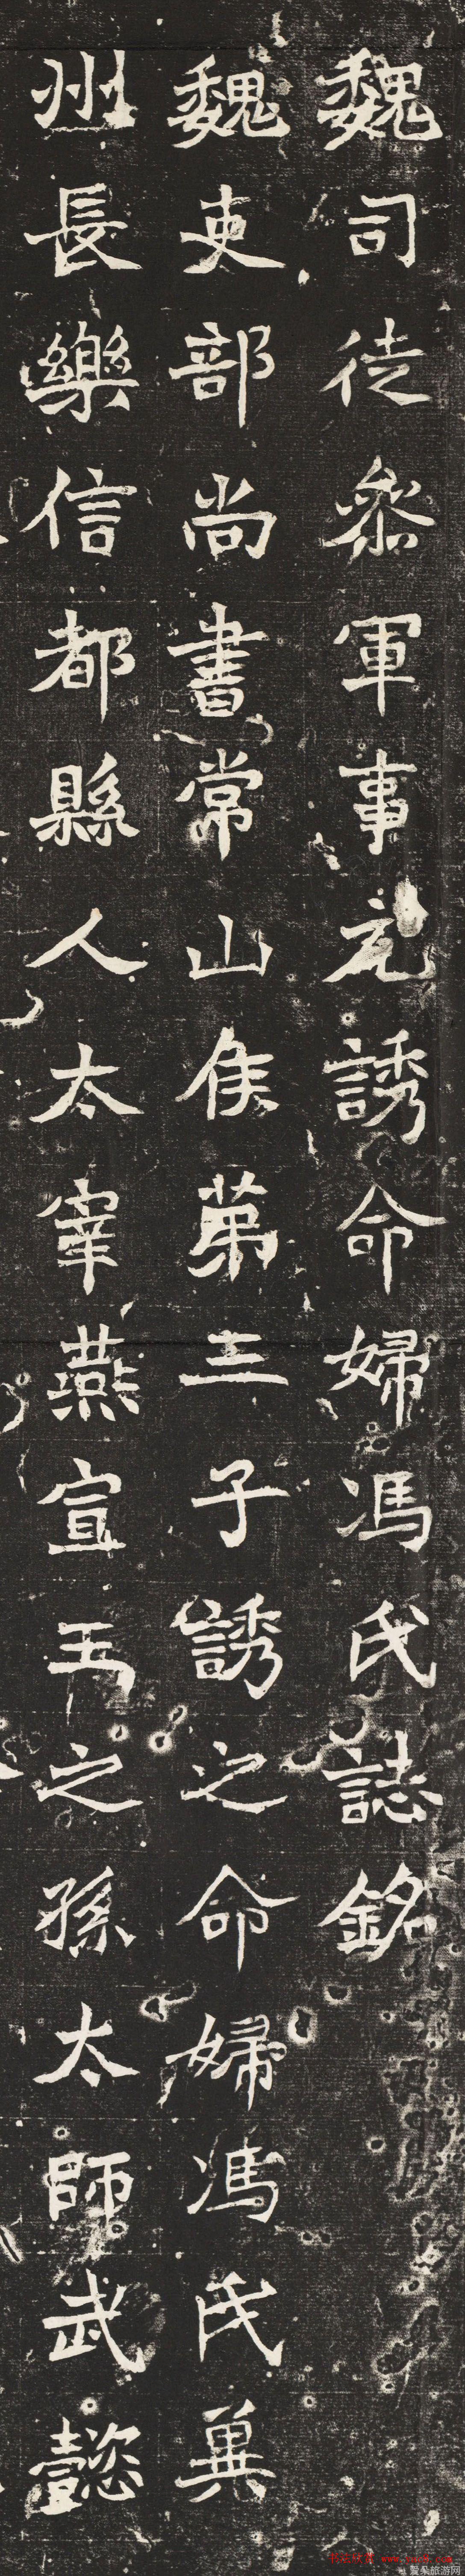 魏司徒參軍事元誘命婦馮氏誌銘
魏吏部尚書常山侯第三子誘之命婦馮氏冀
州長樂信都縣人太宰燕宣王之孫太師武懿